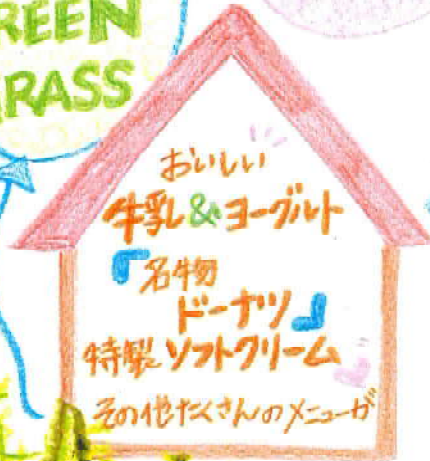 REEN
RASS
おいしい
牛乳&ヨーグルト
『名物
ドーナツ』
特製 ソフトクリーム
その他たくさんのメニューが